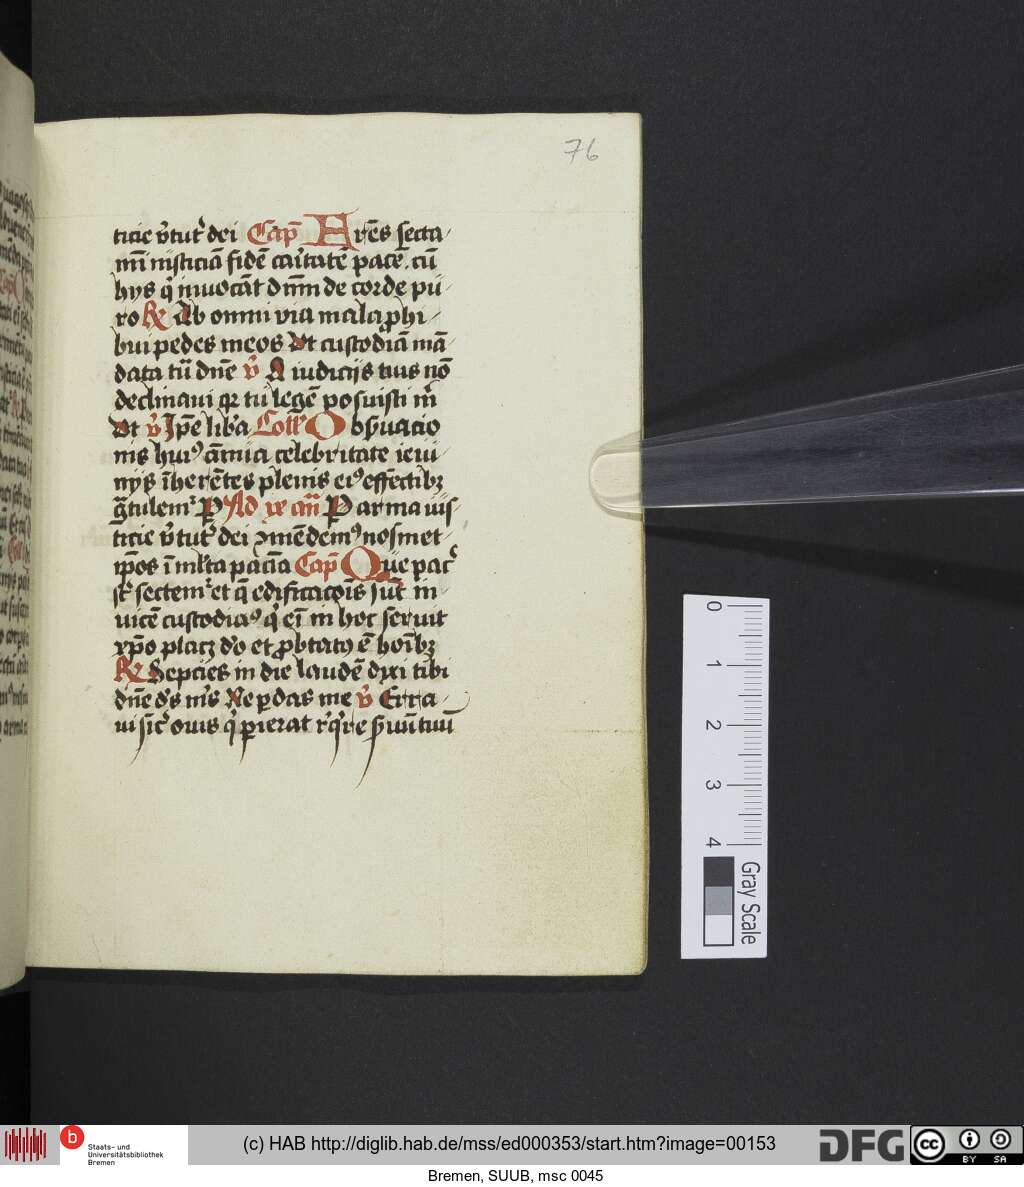 76
ticie v̄tut᷑ dei Cap̄ Ares secta
mī iusticiā fidē caritatē pacē. cū
hys q̄ inuocāt dnm̄ de corde pu
ro R Ab omni via mala ꝓhi
bui pedes meos Vt custodiā mā
data tū dn̄e v̄ A iudicijs tuis nō
declinaui qꝛ tu legē posuisti m̄
Vt v̄ Ip̄e lib̄a Coll᷑ Obs̄uacio
nis hui᷒ āmia celebritate ieiu
nyß īherētes plenis ei᷒ effectibꝫ
ḡtulem᷑ P Ad xe añ P arma ius
ticie v̄tut᷑ dei ꝯmēdem᷒ nosmet
ip̄os ī ml̄ta paciā Cap̄ Que pac᷑
st̄ sectem᷑ et q̄ edificacoīs sūt in
uicē custodia᷒ q̄ eī in hoc seruit
xp̄o placꝫ d̄o et ꝓbtat᷒ ē hoībꝫ
R Sepcies in die laudē dixi tibi
dn̄e d̄s m̄s Ne ꝑdas me v̄ Erra
ui sic᷑ ouis q̄ ꝑierat r᷑q̄re ẜuū tuū
0
1
2
3
4
Gray Scale
b
Staats- und
Universitätsbibliothek
Bremen
(c) HAB http://diglib.hab.de/mss/ed000353/start.htm?image=00153
DFG
cc
BY SA
Bremen, SUUB, msc 0045